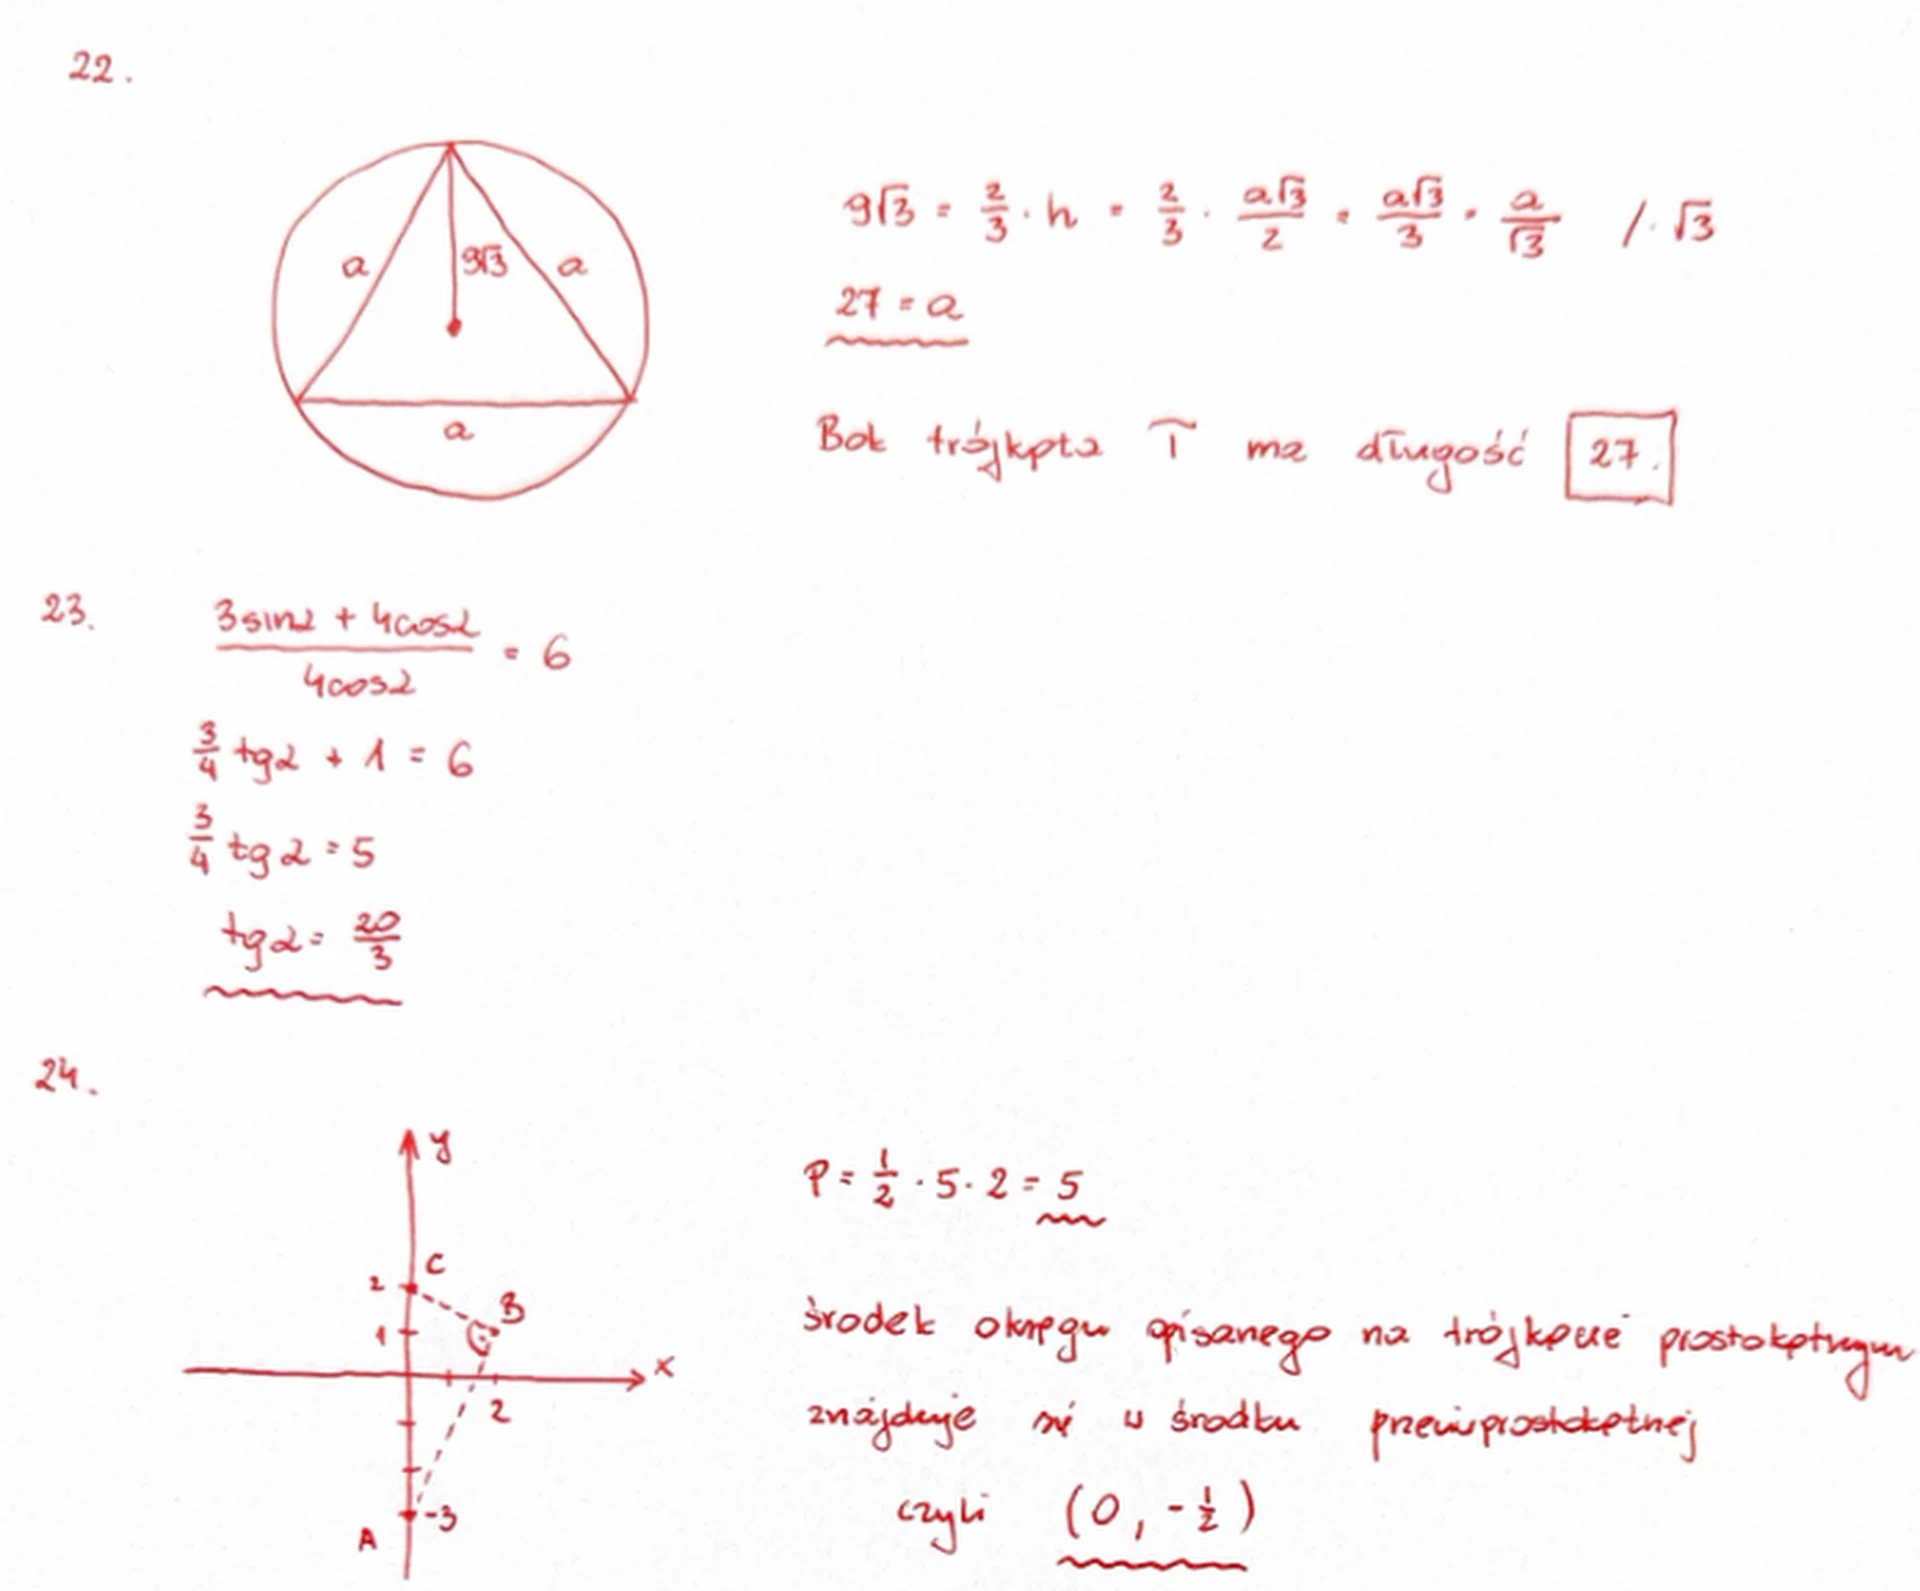 22.
a
9√3
a
a
9√3 = 2/3 · h = 2/3 · a√3/2 = a√3/3 = a/√3 /· √3
27 = a
Bok trójkąta T ma długość 27.
23.
(3sinα + 4cosα)/(4cosα) = 6
3/4 tgα + 1 = 6
3/4 tgα = 5
tgα = 20/3
24.
y
C
2
B
1
x
2
-3
A
P = 1/2 · 5 · 2 = 5
środek okręgu opisanego na trójkącie prostokątnym
znajduje się w środku przeciwprostokątnej
czyli (0, -1/2)